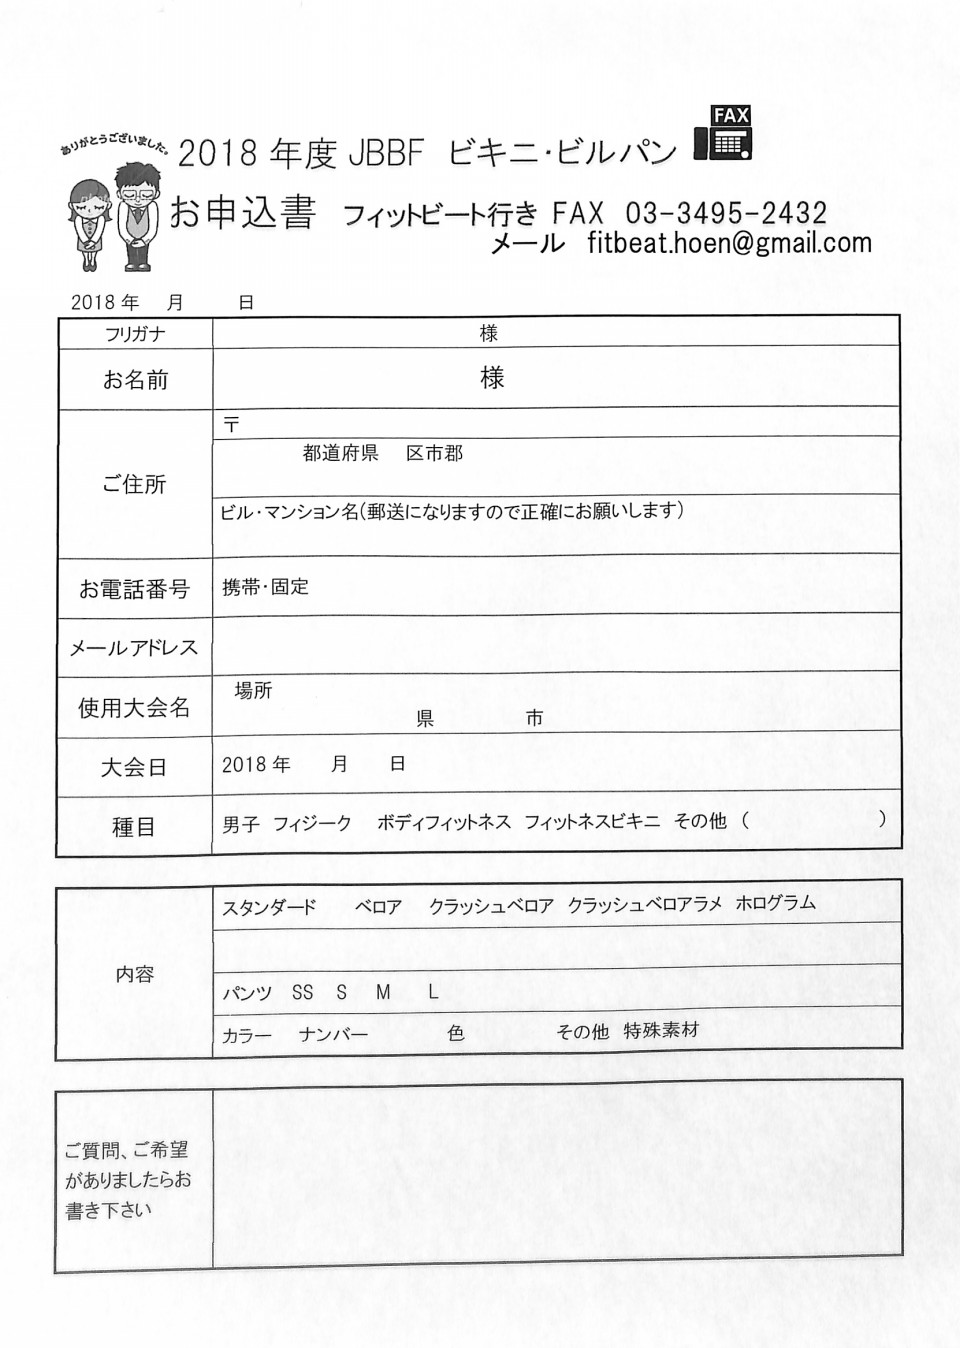 ありがとうございました。
FAX
2018 年度 JBBF ビキニ・ビルパン
お申込書 フィットビート行き FAX 03-3495-2432
メール fitbeat.hoen@gmail.com
2018 年 月 日
フリガナ 様
お名前 様
ご住所
〒
都道府県 区市郡
ビル・マンション名(郵送になりますので正確にお願いします)
お電話番号 携帯・固定
メールアドレス
使用大会名 場所
県 市
大会日 2018 年 月 日
種目 男子 フィジーク ボディフィットネス フィットネスビキニ その他 ( )
内容
スタンダード ベロア クラッシュベロア クラッシュベロアラメ ホログラム
パンツ SS S M L
カラー ナンバー 色 その他 特殊素材
ご質問、ご希望
がありましたらお
書き下さい